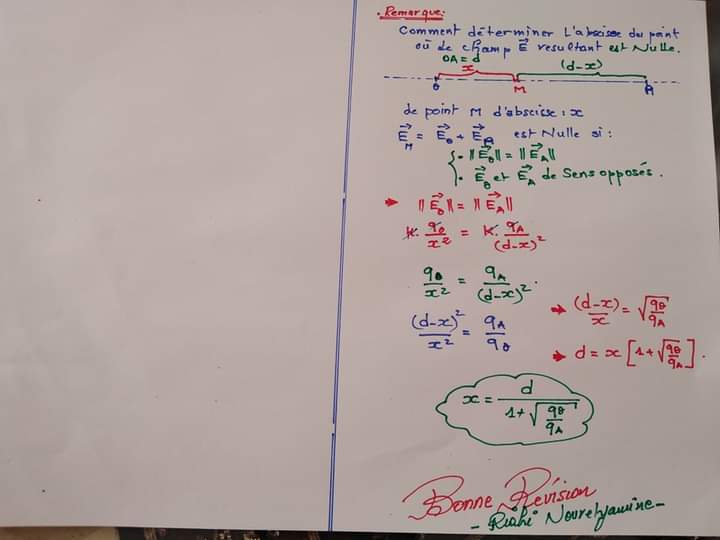 . Remarque:
Comment déterminer L'abscisse du point
où de champ E⃗ resultant est Nulle.
OA = d
x (d-x)
O M A
de point M d'abscisse: x
E⃗_M = E⃗_O + E⃗_A est Nulle si :
• ||E⃗_O|| = ||E⃗_A||
• E⃗_O et E⃗_A de Sens opposés.
→ ||E⃗_O|| = ||E⃗_A||
K. q_O/x² = K. q_A/(d-x)²
q_O/x² = q_A/(d-x)².
(d-x)²/x² = q_A/q_O
→ (d-x)/x = √(q_O/q_A)
→ d = x [1+√(q_O/q_A)].
x = d/(1+√(q_O/q_A))
Bonne Révision
- Riahi Nourelyamine -